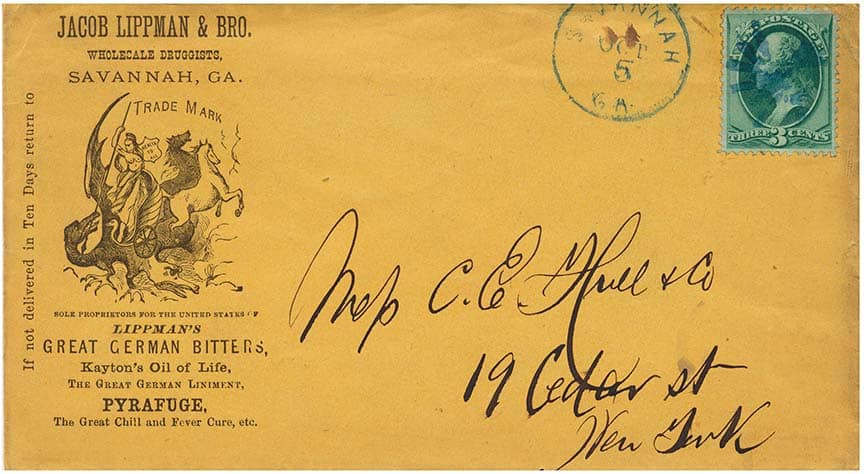 JACOB LIPPMAN & BRO.
WHOLECALE DRUGGISTS,
SAVANNAH, GA.
TRADE MARK
If not delivered in Ten Days return to
SOLE PROPRIETORS FOR THE UNITED STATES OF
LIPPMAN'S
GREAT GERMAN BITTERS,
Kayton's Oil of Life,
THE GREAT GERMAN LINIMENT,
PYRAFUGE,
The Great Chill and Fever Cure, etc.
SAVANNAH
OCT
5
GA.
U.S. POSTAGE
THREE 3 CENTS
Mess C. E. Hull & Co
19 Cedar st
New York